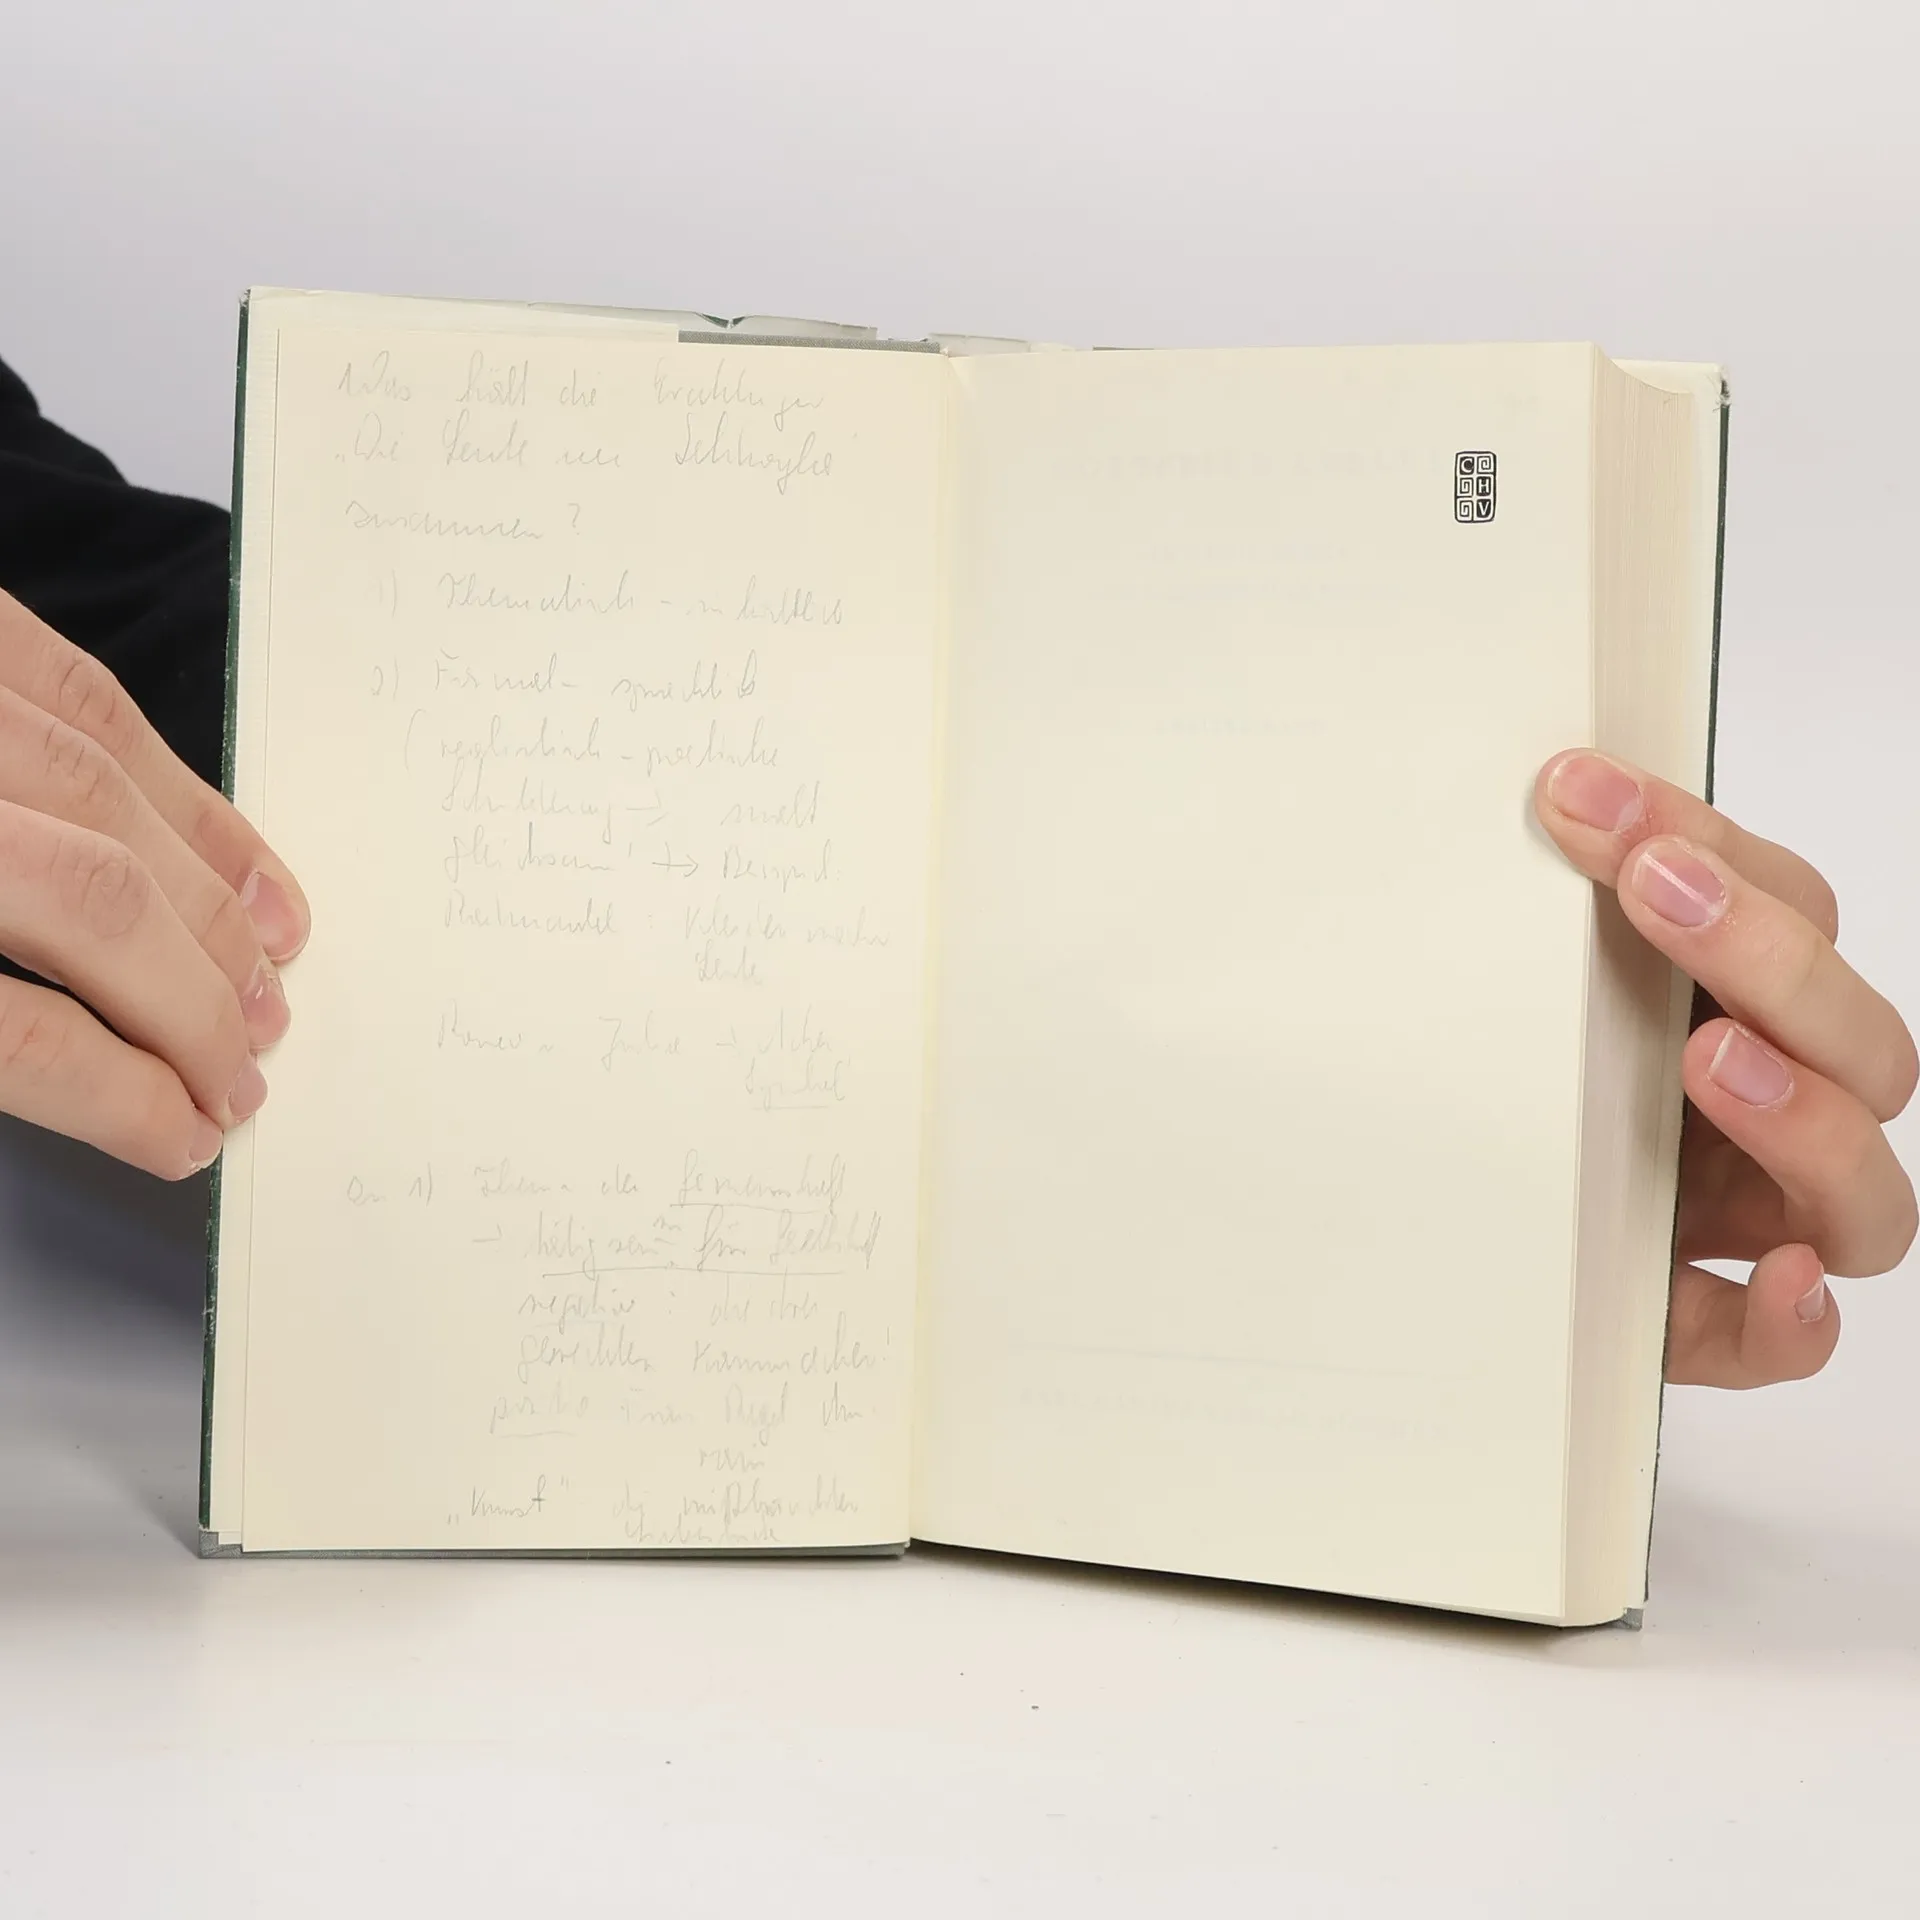 Was hält die Erzählungen
„Die Leute von Seldwyla"
zusammen?
1) Thematisch - inhaltlich
2) Formal - sprachlich
(realistisch - poetische
Schilderung →
gleichsam! → Beispiel:
Rotmantel: Kleider machen
Leute
Romeo u Julia → Acker
Symbol
Zu 1) Thema der Gemeinschaft
→ tätig sein für Gesellschaft
negativ: die drei
gerechten Kammacher!
positiv: Frau Regel Am-
rain
„Kunst" die mißbrauchten
Liebesbriefe
C
H
V